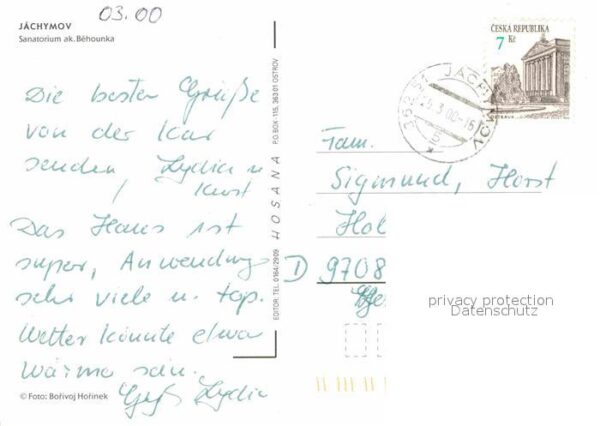 03.00
JÁCHYMOV
Sanatorium ak. Běhounka
Die besten Grüße
von der Kur
senden, Lydia u.
Kurt
Das Haus ist
super, Anwendungen
sehr viele u. top.
Wetter könnte etwas
wärmer sein.
Gruß Lydia
© Foto: Bořivoj Hořínek
EDITOR: TEL. 0164/2909 HOSANA P.O.BOX - 115, 363 01 OSTROV
ČESKÁ REPUBLIKA
7 Kč
362 51 JÁCHYMOV
3.00-16
Fam.
Sigmund, Horst
Hol
D 9708
privacy protection
Datenschutz